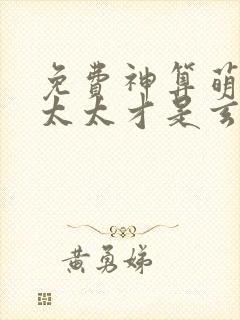 免費神算萌
太太才是玄
黃勇娣